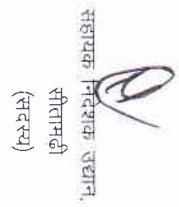 सहायक निदेशक उद्यान,
सीतामढ़ी
(सदस्य)